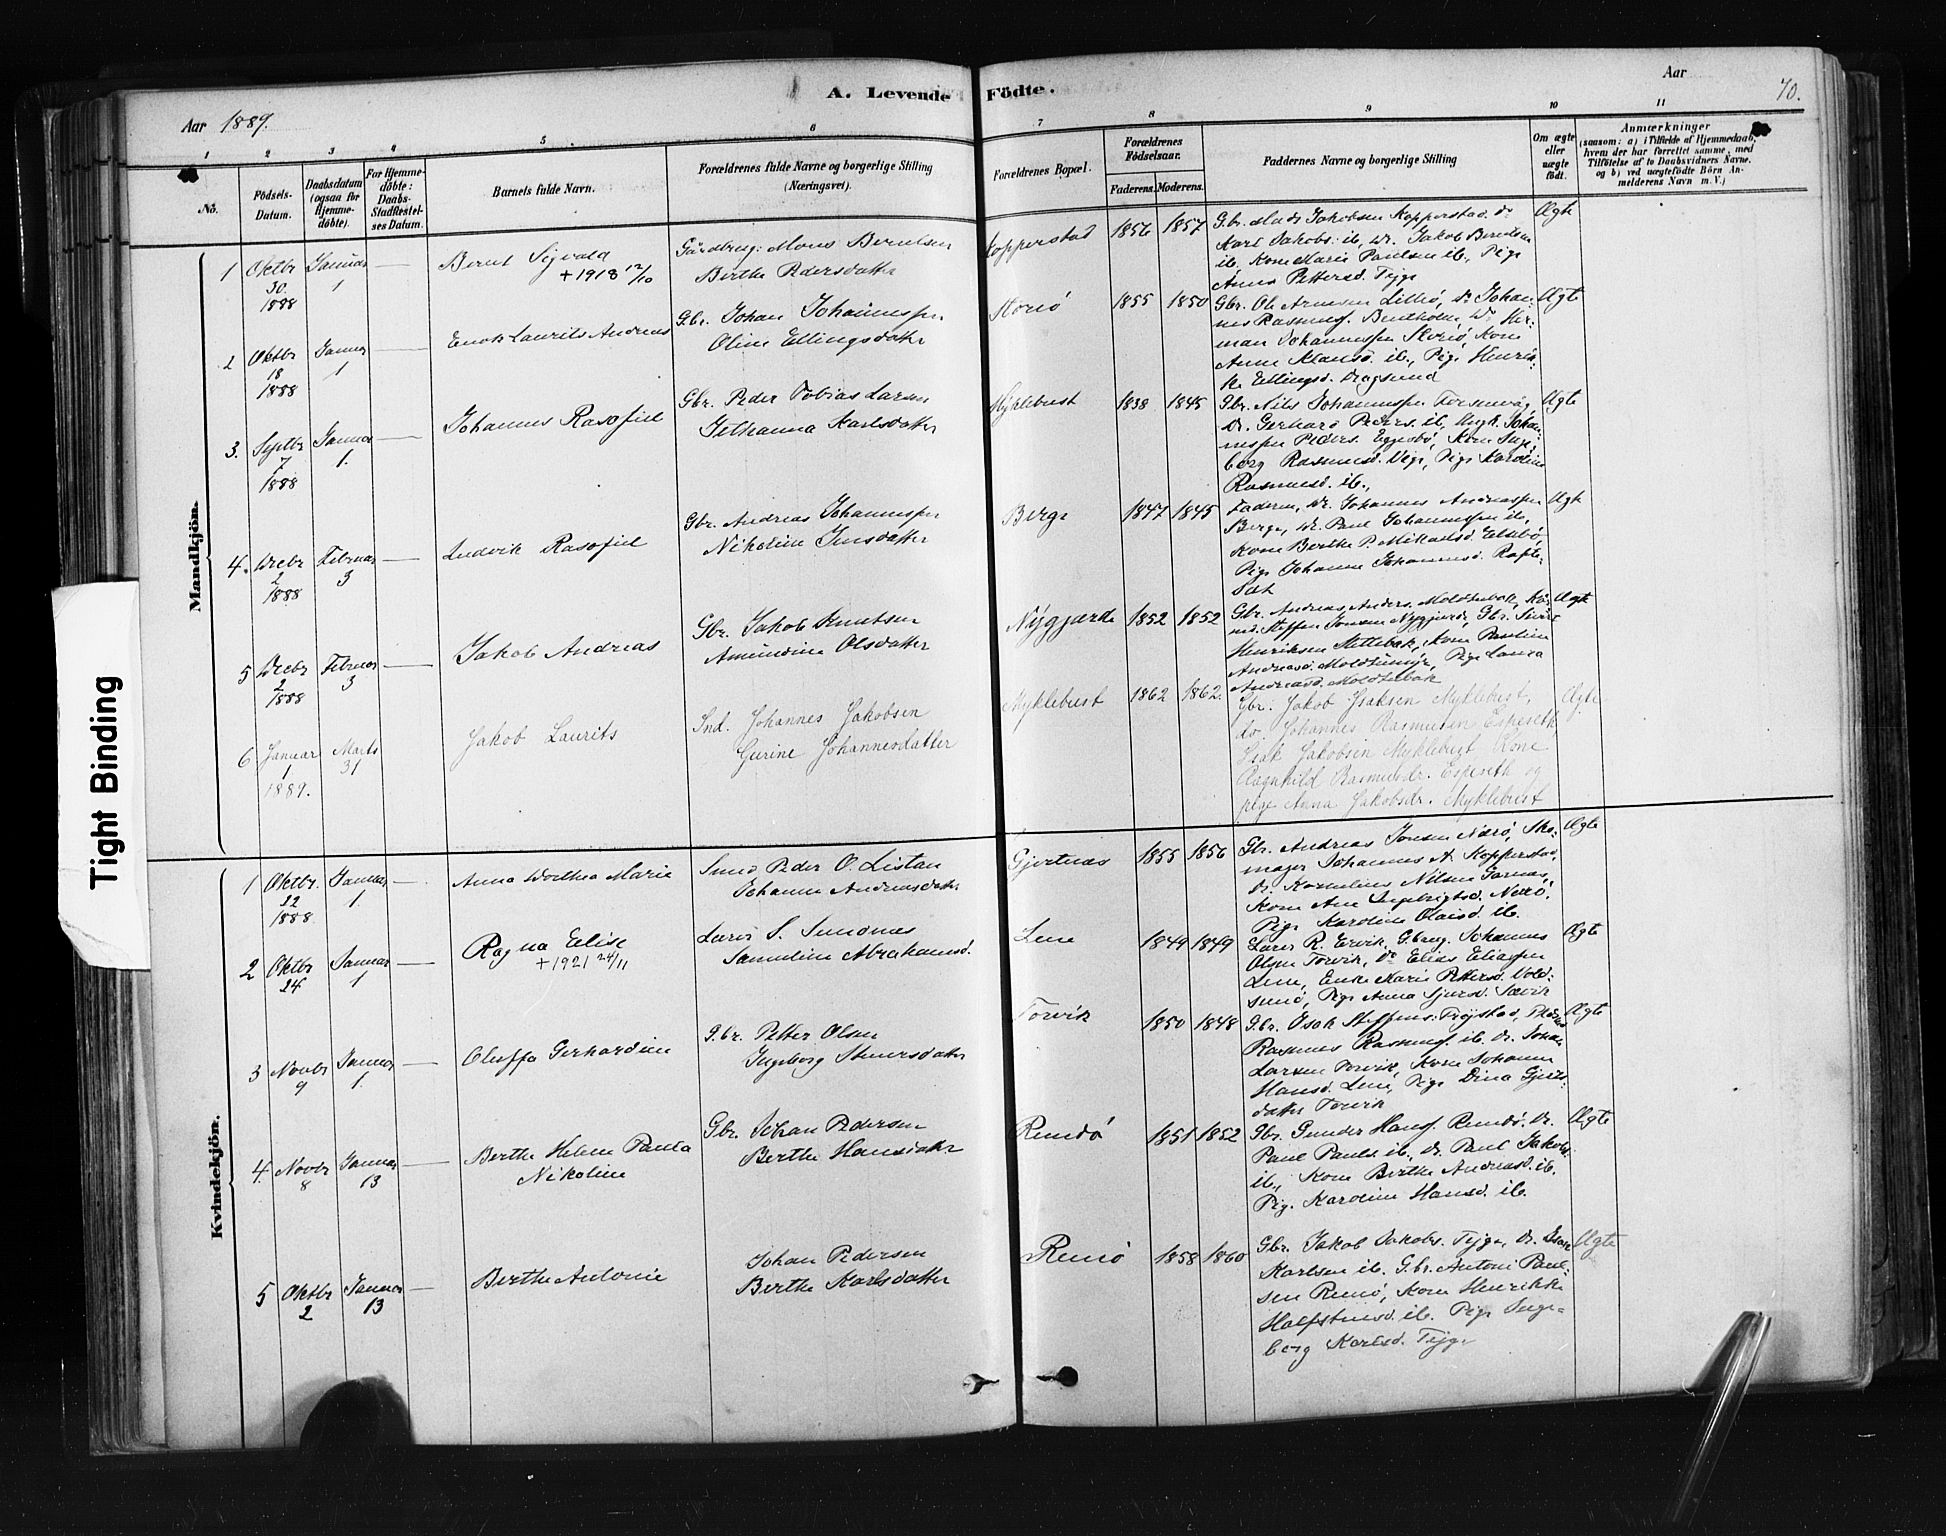 A. Levende Födte.
Aar 1889.
Aar
70.
1 2 3 4 5 6 7 8 9 10 11
No.
Födsels-Datum.
Daabsdatum (ogsaa for Hjemme-döbte).
For Hjemme-döbte: Daabs-Stadfæstel-ses Datum.
Barnets fulde Navn.
Forældrenes fulde Navne og borgerlige Stilling (Næringsvei).
Forældrenes Bopæl.
Forældrenes Födselsaar.
Faderens. Moderens.
Faddernes Navne og borgerlige Stilling
Om ægte eller uægte født.
Anmærkninger
(saasom: a) i Tilfælde af Hjemmedaab,
hvem der har forrettet samme, med
Tilföielse af to Daabsvidners Navne.
og b) ved uægtefödte Börn An-
melderens Navn m. V.)
Mandkjön.
1 Oktbr 30. 1888 Januar 1 — Bernt Sigvald +1918 12/10
Gårdbrug: Mons Berntsen
Berthe Pedersdatter
Kopperstad 1856 1857
Gbr. Mads Jakobsen Kopperstad, do
Karl Jakobs. ib, Dr. Jakob Berntsen
ib. Kone Marie Paulsen ib., Pige
Anna Pettersd. Tejge
Ægte
2 Oktbr 18 1888 Januar 1 — Enok Laurits Andreas
Gbr. Johan Johannessen
Oline Ellingsdatter
Storiø 1855 1850
Gbr. Ole Arnesen Lillø, Dr. Johan-
nes Rasmuss. Bentholm, Dr. Her-
man Johannessen Storiø, Kone
Anne Klausd. ib., Pige Henrik-
ke Ellingsd. Dragsund
Ægte
3. Septbr 7 1888 Januar 1. — Johannes Rasofiel
Gbr. Peder Tobias Larsen
Jethanna Karlsdatter
Myklebust 1838 1845
Gbr. Nils Johannessen
Dr. Gerhard Peders. ib, Ungk. Johan-
nessen Peders. Eggesbø, Kone Inge-
borg Rasmusd. Pige Karoline
Rasmusd. ib.,
Ægte
4. Decbr 2 1888 Februar 3 — Ludvik Rasofiel
Gbr. Andreas Johannessen
Nikoline Jensdatter
Berge 1847 1845
Faderen, Dr. Johannes Andreassen
Berge, Dr. Paul Johannessen ib,
Kone Berthe P. Mikaelsd. Elsebø,
Pige Johanne Johannesd. Rafte-
sæt
Ægte
5 Decbr 2 1888 Februar 3 — Jakob Andreas
Gbr. Jakob Knutsen
Amundine Olsdatter
Nygjærde 1852 1852
Gbr. Andreas Anders. Moldtubak,
Steffen Jonsen Nygjærde, Gbr. Sivert
Henriksen Stettebak, Kone Pauline
Andreasd. Moldtumyr, Pige Laura
Andreasd. Moldtubak
Ægte
6 Januar 1 1889. Marts 31 Jakob Laurits
Ind. Johannes Jakobsen
Gurine Johannesdatter
Myklebust 1862 1862.
Gbr. Jakob Isaksen Myklebust,
do. Johannes Rasmusen Espeseth,
Isak Jakobsen Myklebust Kone
Ragnhild Rasmusdr. Espeseth og
pige Anna Jakobsdr. Myklebust
Ægte.
Kvindekjön.
1 Oktbr. 22 1888 Januar 1. — Anna Dorthea Marie
Smed Peder O. Listau
Johanne Andreasdatter
Gjertnæs 1855 1856
Gbr. Andreas Jonsen Nærø, Sko-
mager Johannes A. Kopperstad,
Dr. Kornelius Nilsen Garnæs,
Kone Ane Ingebrigtsd. Nærø,
Pige Karoline Olaisd. ib.
Ægte
2 Oktbr 24 Januar 1 — Ragna Elise +1921 24/11
Lars S. Sundnæs
Samuline Abrahamsd.
Leine 1849 1849
Lars R. Ervik, Gbrug. Johannes
Olsen Torvik, do Elias Eliassen
Leine, Enke Marie Pettersd. Vold-
sund, Pige Anna Sjursd. Sævik
Ægte
3 Novbr 9 Januar 1. — Oluffa Gerhardine
Gbr. Petter Olsen
Ingeborg Steversdatter
Torvik 1850 1848
Gbr. Isak Steffens. Frøjstad,
Rasmus Rasmuss. ib. Dr. Johan
Larsen Torvik, Kone Johanne
Hansd. Leine, Pige Dina Gjerts-
datter Torvik
Ægte
4. Novbr 8 Januar 13 — Berthe Helene Paula
Nikoline
Gbr. Johan Pedersen
Berthe Hansdatter
Remdø 1851 1852
Gbr. Gunder Hanss. Remdø. Dr.
Paul Pauls. ib., Dr. Paul Jakobs.
ib., Kone Berthe Andreasd. ib.
Pig. Karoline Hansd. ib.
Ægte
5 Oktbr 2 Januar 13 Berthe Antonie
Johan Pedersen
Berthe Karlsdatter
Remø 1858 1860
Gbr. Jakob Jakobs. Tejge, Dr. Isak
Karlsen ib. Gbr. Antoni Paul-
sen Remø, Kone Henrikke
Halfstensd. ib. Pige Inge-
borg Karlsd. Tejge
Ægte
Tight Binding